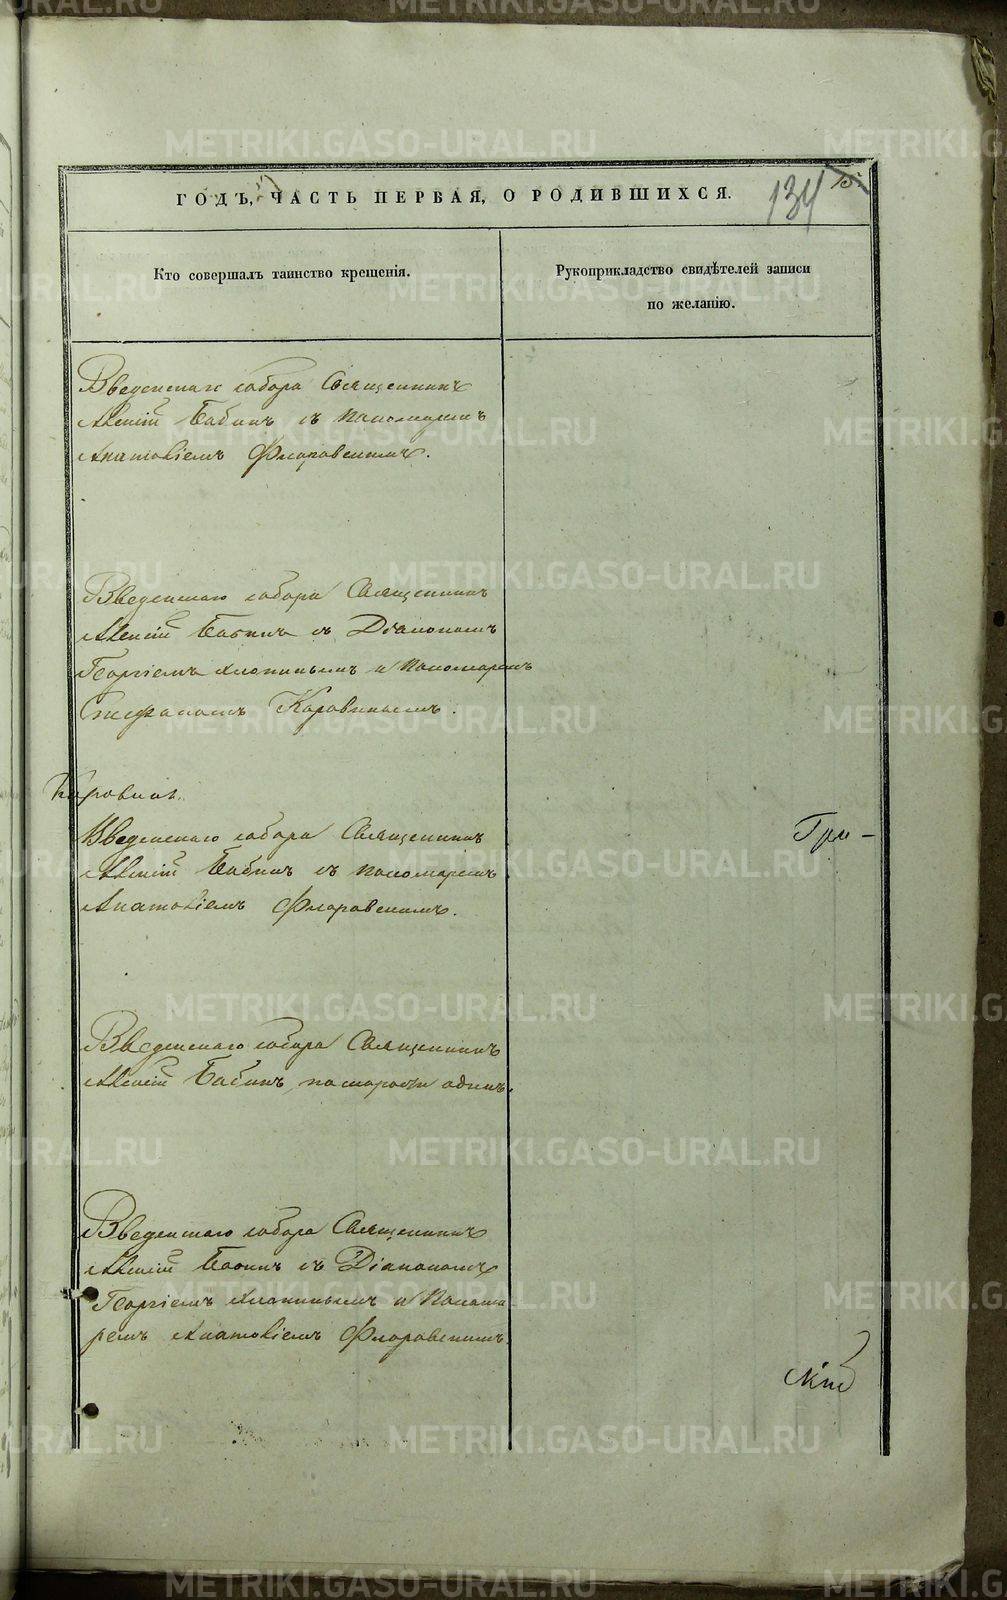 ГОДЪ, ЧАСТЬ ПЕРВАЯ, О РОДИВШИХСЯ.
134
Кто совершалъ таинство крещенія.
Рукоприкладство свидѣтелей записи
по желанію.
Введенскаго собора Священникъ
Алексій Бабинъ съ пономаремъ
Анатоліемъ Флоровскимъ.
Введенскаго собора Священникъ
Алексій Бабинъ съ Діакономъ
Георгіемъ Хлопинымъ и Пономаремъ
Стефаномъ Коровинымъ.
Введенскаго собора Священникъ
Гри-
Алексій Бабинъ съ пономаремъ
Анатоліемъ Флоровскимъ.
Введенскаго собора Священникъ
Алексій Бабинъ, по старости одинъ.
Введенскаго собора Священникъ
Алексій Бабинъ съ Діакономъ
Георгіемъ Хлопинымъ и Понома
ремъ Анатоліемъ Флоровскимъ.
METRIKI.GASO-URAL.RU